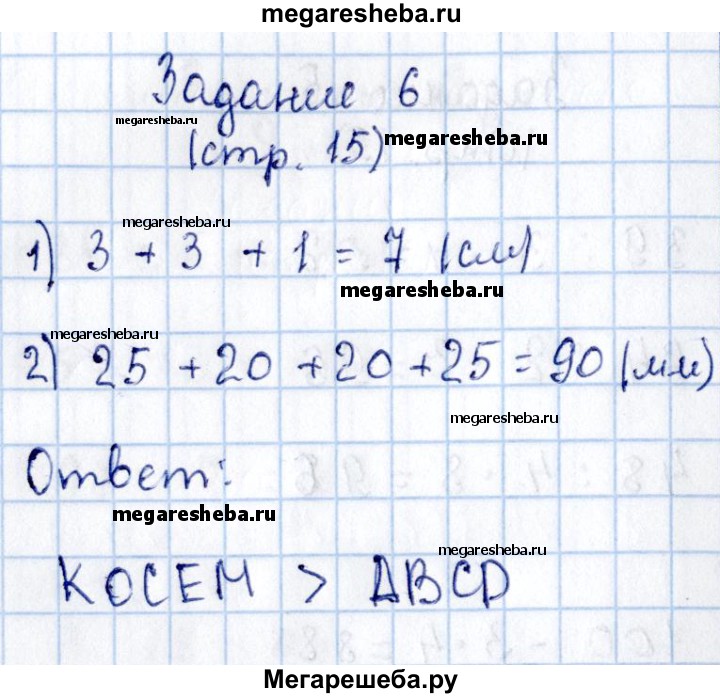 megaresheba.ru
Задание 6
megaresheba.ru
(стр. 15)
megaresheba.ru
megaresheba.ru
1) 3 + 3 + 1 = 7 (см)
megaresheba.ru
megaresheba.ru
2) 25 + 20 + 20 + 25 = 90 (мм)
megaresheba.ru
Ответ:
megaresheba.ru
megaresheba.ru
КОСЕМ > ABCD
Мегарешеба.ру